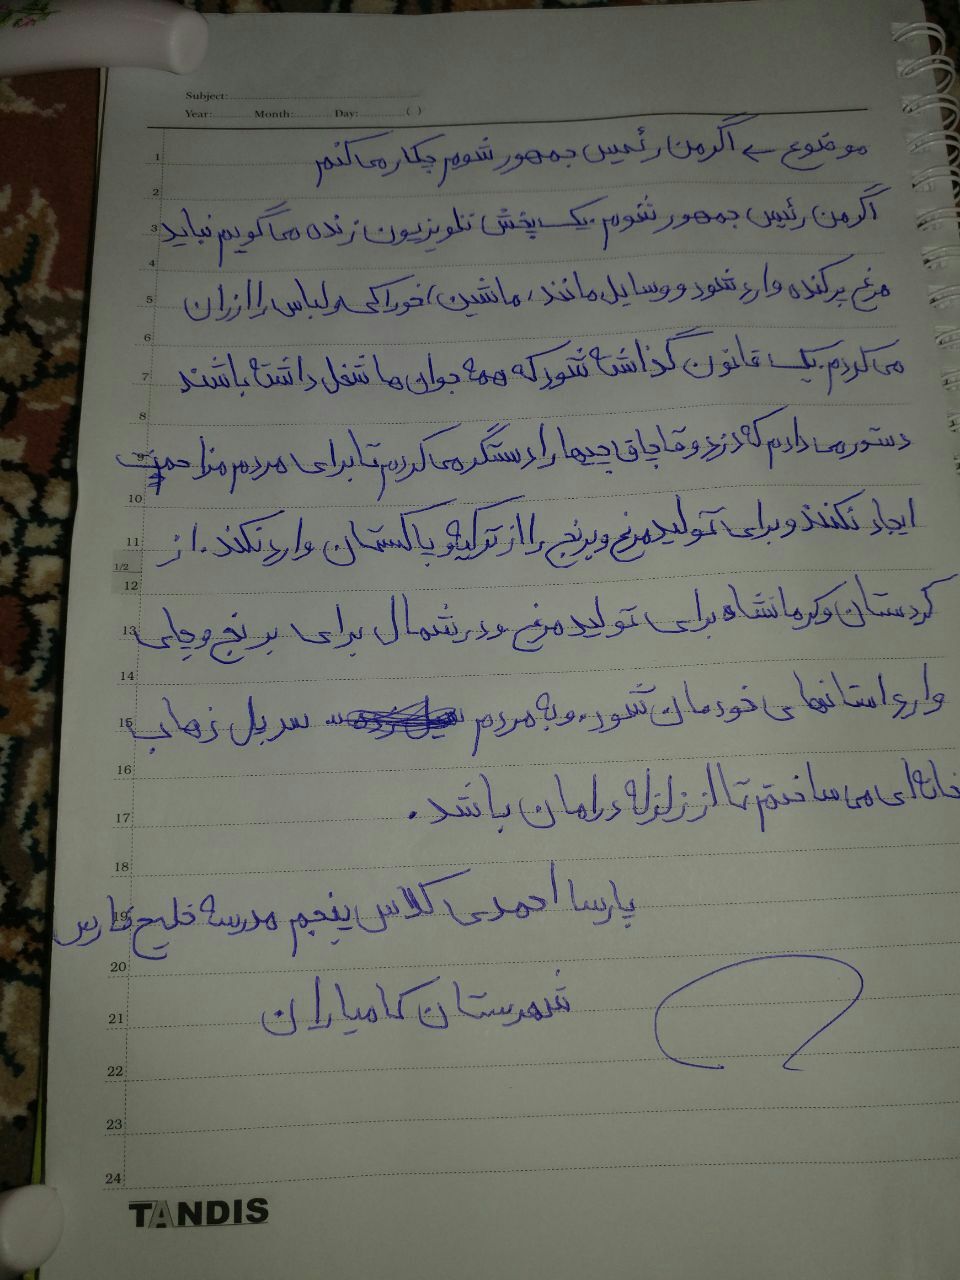 Subject:
Year: Month: Day: ( )
موضوع ← اگر من رئیس جمهور شوم چکار می کنم
اگر من رئیس جمهور شوم. یک پخش تلویزیون زنده می گویم نباید
مرغ پرکنده وارد شود و وسایل مانند، ماشین، خوراکی و لباس را ارزان
می کردم. یک قانون گذاشته شود که همه جوان ها شغل داشته باشند
دستور می دادم که دزد و قاچاق چیها را دستگر می کردم تا برای مردم مزاحمت
ایجاد نکنند و برای تولید مرغ و برنج را از ترکیه و پاکستان وارد نکند. از
کردستان و کرمانشاه برای تولید مرغ و در شمال برای برنج و چای
وارد استانهای خودمان شود. و به مردم سرپل زهاب
خانه ای می ساختم تا از زلزله در امان باشد.
پارسا احمدی کلاس پنجم مدرسه خلیج فارس
شهرستان کامیاران
1
2
3
4
5
6
7
8
9
10
11
1/2
12
13
14
15
16
17
18
19
20
21
22
23
24
TANDIS